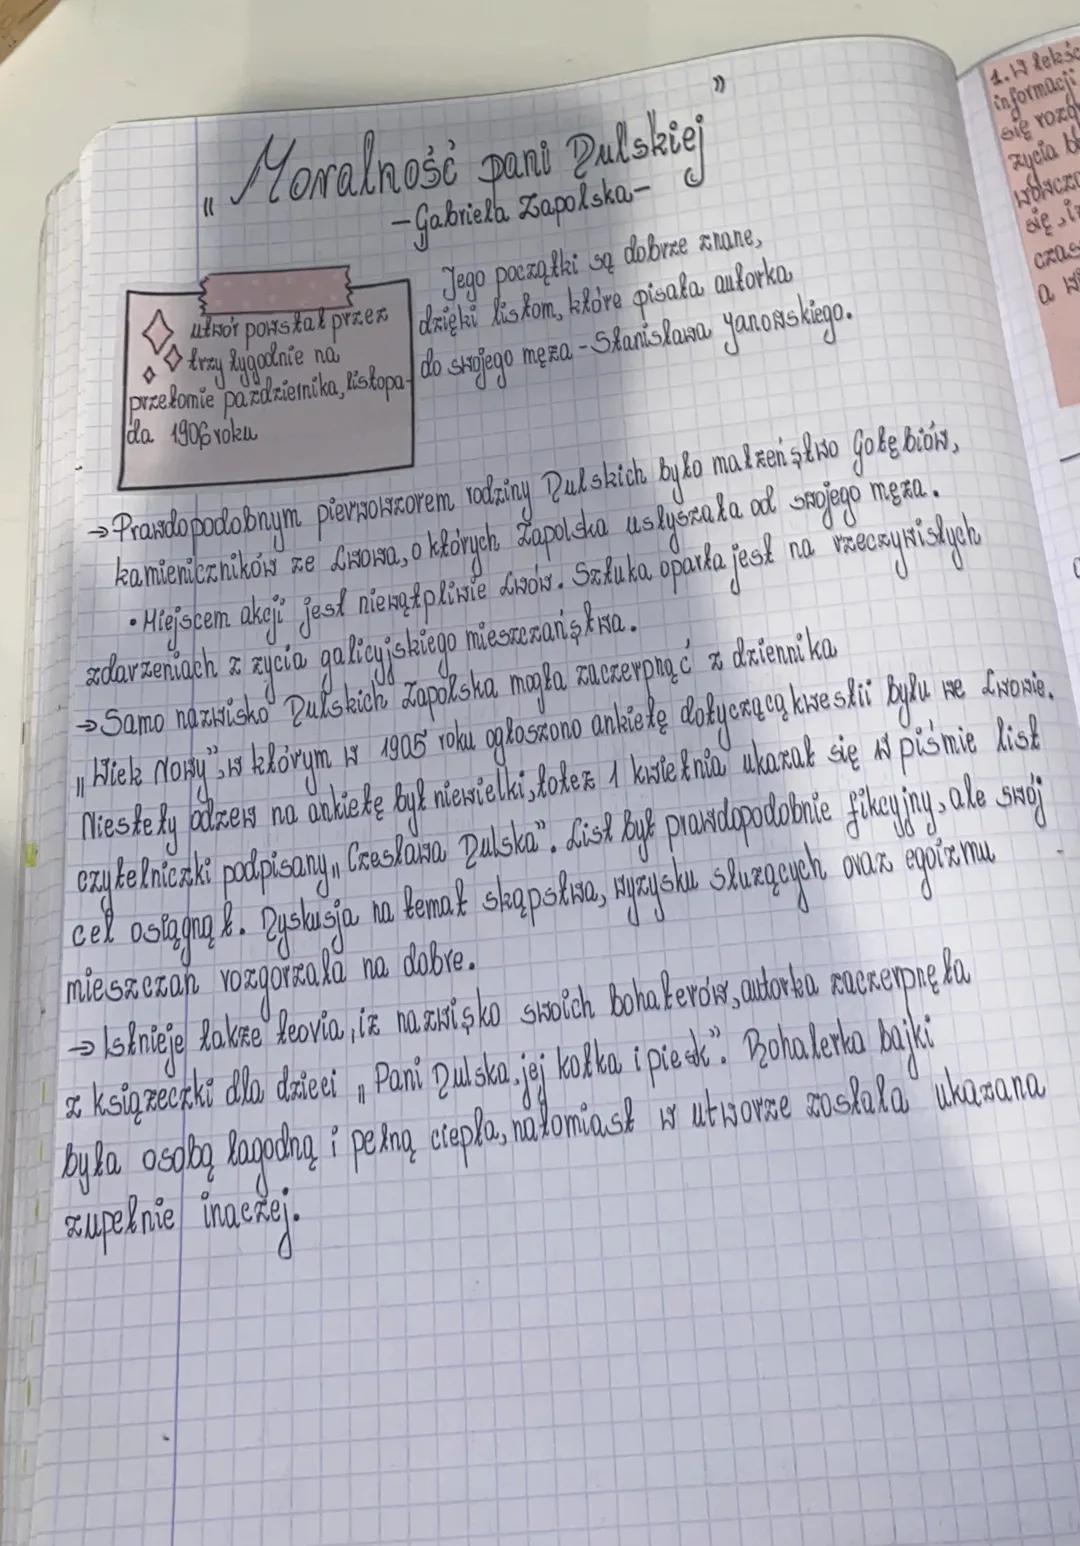 „Moralność pani Dulskiej”
-Gabriela Zapolska-
utwór powstał przez
trzy tygodnie na
przełomie października, listopa-
da 1906 roku
Jego początki są dobrze znane,
dzięki listom, które pisała autorka
do swojego męża - Stanisława Janowskiego.
→ Prawdopodobnym pierwowzorem rodziny Dulskich było małżeństwo Gołębiów,
kamieniczników ze Lwowa, o których Zapolska usłyszała od swojego męża.
• Miejscem akcji jest niewątpliwie Lwów. Sztuka oparta jest na rzeczywistych
zdarzeniach z życia galicyjskiego mieszczaństwa.
→ Samo nazwisko Dulskich Zapolska mogła zaczerpnąć z dziennika
„Wiek Nowy", w którym w 1905 roku ogłoszono ankietę dotyczącą kwestii bytu we Lwowie.
Niestety odzew na ankietę był niewielki, toteż 1 kwietnia ukazał się w piśmie list
czytelniczki podpisany „Czesława Dulska". List był prawdopodobnie fikcyjny, ale swój
cel osiągnął. Dyskusja na temat skąpstwa, wyzysku służących oraz egoizmu
mieszczan rozgorzała na dobre.
→ Istnieje także teoria, iż nazwisko swoich bohaterów, autorka zaczerpnęła
z książeczki dla dzieci „Pani Dulska, jej kotka i piesek". Bohaterka bajki
była osobą łagodną i pełną ciepła, natomiast w utworze została ukazana
zupełnie inaczej.
1. W
informacji
się
życia
się, i
czas
a